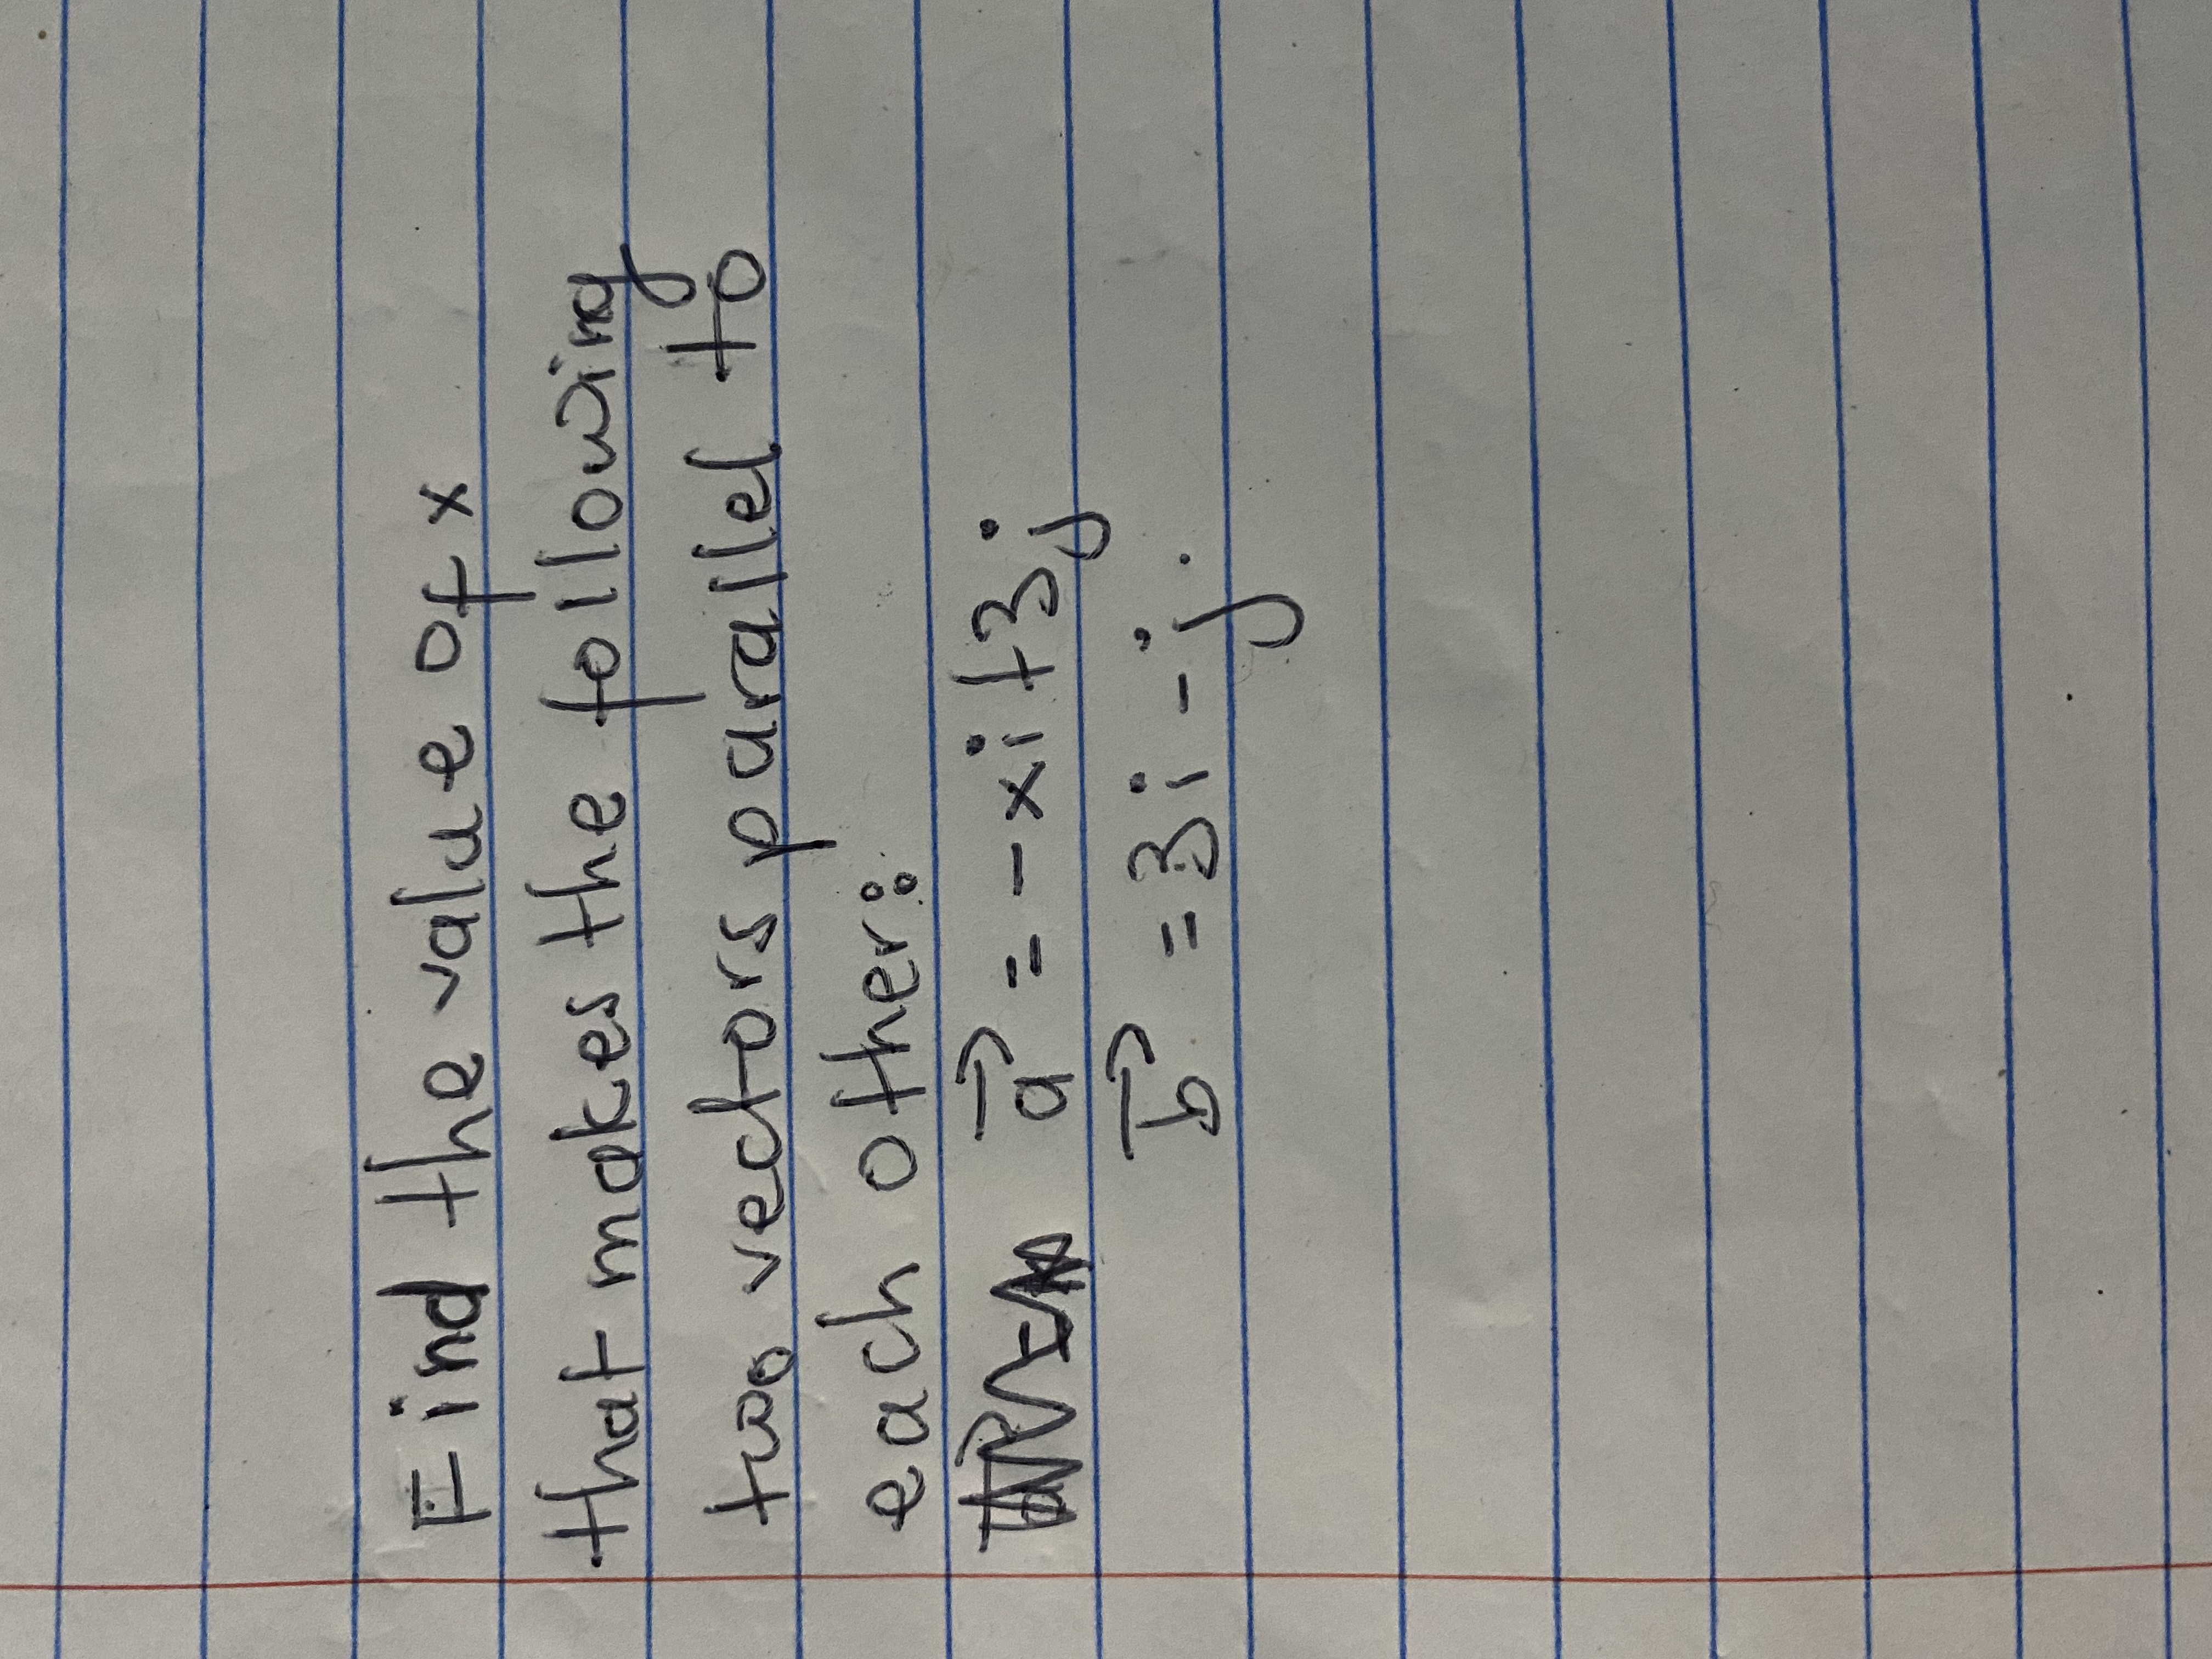 Find the value of x
that makes the following
two vectors parallel to
each other:
a⃗ = -xi+3j
b⃗ = 3i-j.